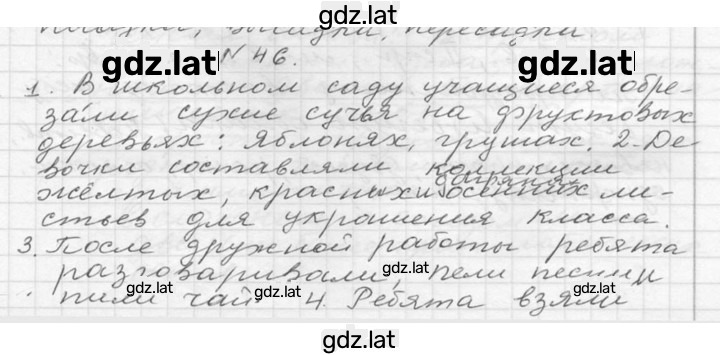 gdz.lat
пересадки
gdz.lat № 46. gdz.lat
1. В школьном саду учащиеся обре-
зали сухие сучья на фруктовых
деревьях: яблонях, грушах. 2. Де
вочки составляли коллекции
жёлтых, красных и багряных осенних ли-
стьев для украшения класса.
3. После дружной работы ребята
разговаривали, пели песни и
gdz.lat gdz.lat
пили чай 4. Ребята взяли
gdz.lat gdz.lat
gdz.lat